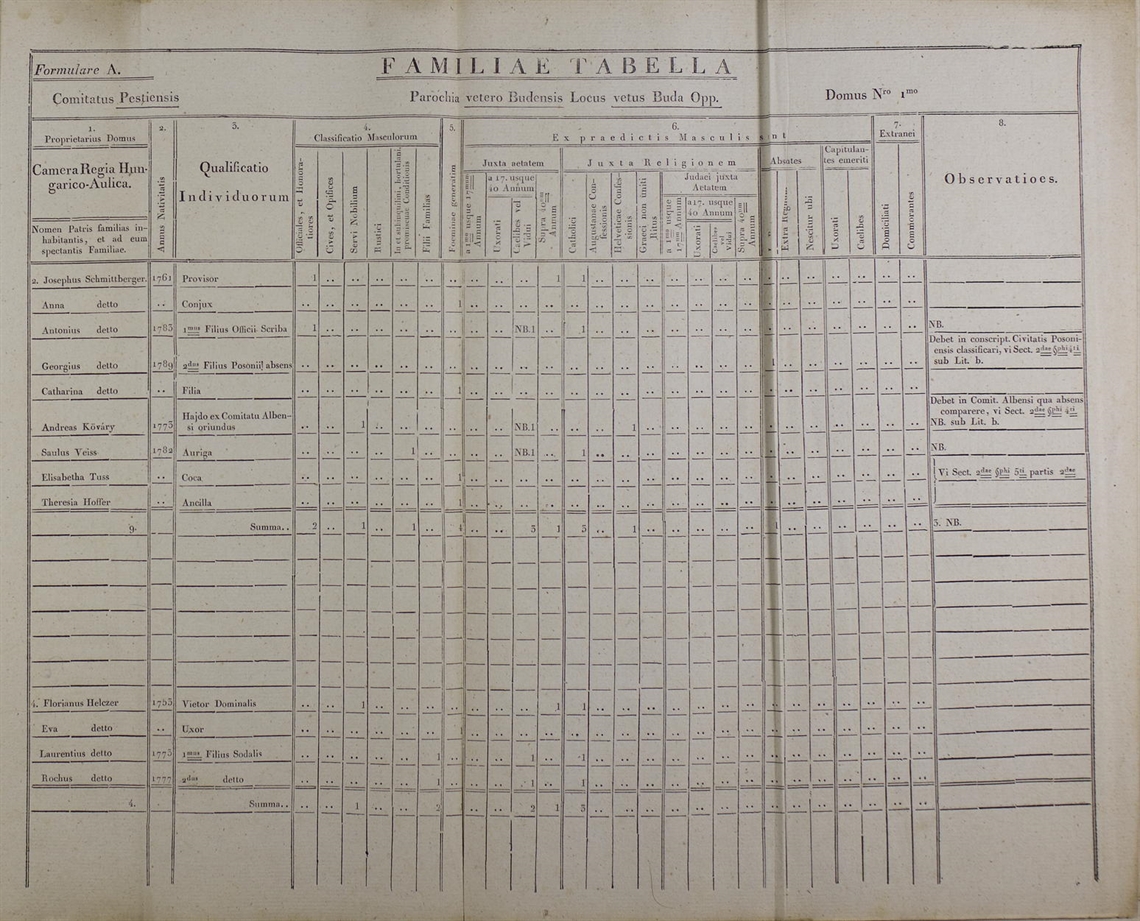 Formulare A.
FAMILIAE TABELLA
Comitatus Pestiensis
Parochia vetero Budensis Locus vetus Buda Opp.
Domus Nro 1mo
1.
Proprietarius Domus
Camera Regia Hun-
garico-Aulica.
Nomen Patris familias in-
habitantis, et ad eum
spectantis Familiae.
2.
Annus Nativitatis
3.
Qualificatio
Individuorum
4.
Classificatio Masculorum
Officiales, et Honora-
tiores
Cives, et Opifices
Servi Nobilium
Rustici
In et subinquilini, hortulani,
promiscuae Conditionis
Filii Familias
5.
Foeminae generatim
6.
Ex praedictis Masculis sunt
Juxta aetatem
a 1mo usque 17mum
Annum
a 17. usque
40 Annum
Uxorati
Caelibes vel
Vidui
Supra 40um
Annum
Juxta Religionem
Catholici
Augustanae Con-
fessionis
Helveticae Confes-
sionis
Graeci non uniti
Ritus
Judaei juxta
Aetatem
a 1mo usque
17mum Annum
a 17. usque
40 Annum
Uxorati
Caelibes
vel
Vidui
Supra 40um
Annum
Absates
Extra Regn....
Nescitur ubi
Capitulan-
tes emeriti
Uxorati
Caelibes
7.
Extranei
Domiciliati
Commorantes
8.
Observatioes.
2. Josephus Schmittberger. 1761 Provisor 1 .. .. .. .. .. .. .. .. .. 1 1 .. .. .. .. .. .. .. .. .. .. .. .. ..
Anna detto .. Conjux .. .. .. .. .. .. 1 .. .. .. .. .. .. .. .. .. .. .. .. .. .. .. .. .. ..
Antonius detto 1783 1mus Filius Officii Scriba 1 .. .. .. .. .. .. .. .. NB.1 .. 1 .. .. .. .. .. .. .. .. .. .. .. .. .. NB.
Georgius detto 1789 2dus Filius Posonii absens .. .. .. .. .. .. .. .. .. .. .. .. .. .. .. .. .. .. .. 1 .. .. .. .. .. Debet in conscript. Civitatis Posoni-
ensis classificari, vi Sect. 2dae §phi 4ti
sub Lit. b.
Catharina detto .. Filia .. .. .. .. .. .. 1 .. .. .. .. .. .. .. .. .. .. .. .. .. .. .. .. .. ..
Andreas Köváry 1773 Hajdo ex Comitatu Alben-
si oriundus .. .. 1 .. .. .. .. .. .. NB.1 .. .. .. 1 .. .. .. .. .. .. .. .. .. .. .. Debet in Comit. Albensi qua absens
comparere, vi Sect. 2dae §phi 4ti
NB. sub Lit. b.
Saulus Veiss 1782 Auriga .. .. .. .. 1 .. .. .. .. NB.1 .. 1 .. .. .. .. .. .. .. .. .. .. .. .. .. NB.
Elisabetha Tuss .. Coca .. .. .. .. .. .. 1 .. .. .. .. .. .. .. .. .. .. .. .. .. .. .. .. .. .. Vi Sect. 2dae §phi 5ti partis 2dae
Theresia Hoffer .. Ancilla .. .. .. .. .. .. 1 .. .. .. .. .. .. .. .. .. .. .. .. .. .. .. .. .. ..
9. Summa.. 2 .. 1 .. 1 .. 4 .. .. 3 1 3 .. 1 .. .. .. .. .. 1 .. .. .. .. .. 3. NB.
4. Florianus Helczer 1753 Vietor Dominalis .. .. 1 .. .. .. .. .. .. .. 1 1 .. .. .. .. .. .. .. .. .. .. .. .. ..
Eva detto .. Uxor .. .. .. .. .. .. 1 .. .. .. .. .. .. .. .. .. .. .. .. .. .. .. .. .. ..
Laurentius detto 1773 1mus Filius Sodalis .. .. .. .. .. 1 .. .. .. 1 .. 1 .. .. .. .. .. .. .. .. .. .. .. .. ..
Rochus detto 1777 2dus detto .. .. .. .. .. 1 .. .. .. 1 .. 1 .. .. .. .. .. .. .. .. .. .. .. .. ..
4. Summa.. .. .. 1 .. .. 2 .. .. 2 1 3 .. .. .. .. .. .. .. .. .. .. .. .. ..